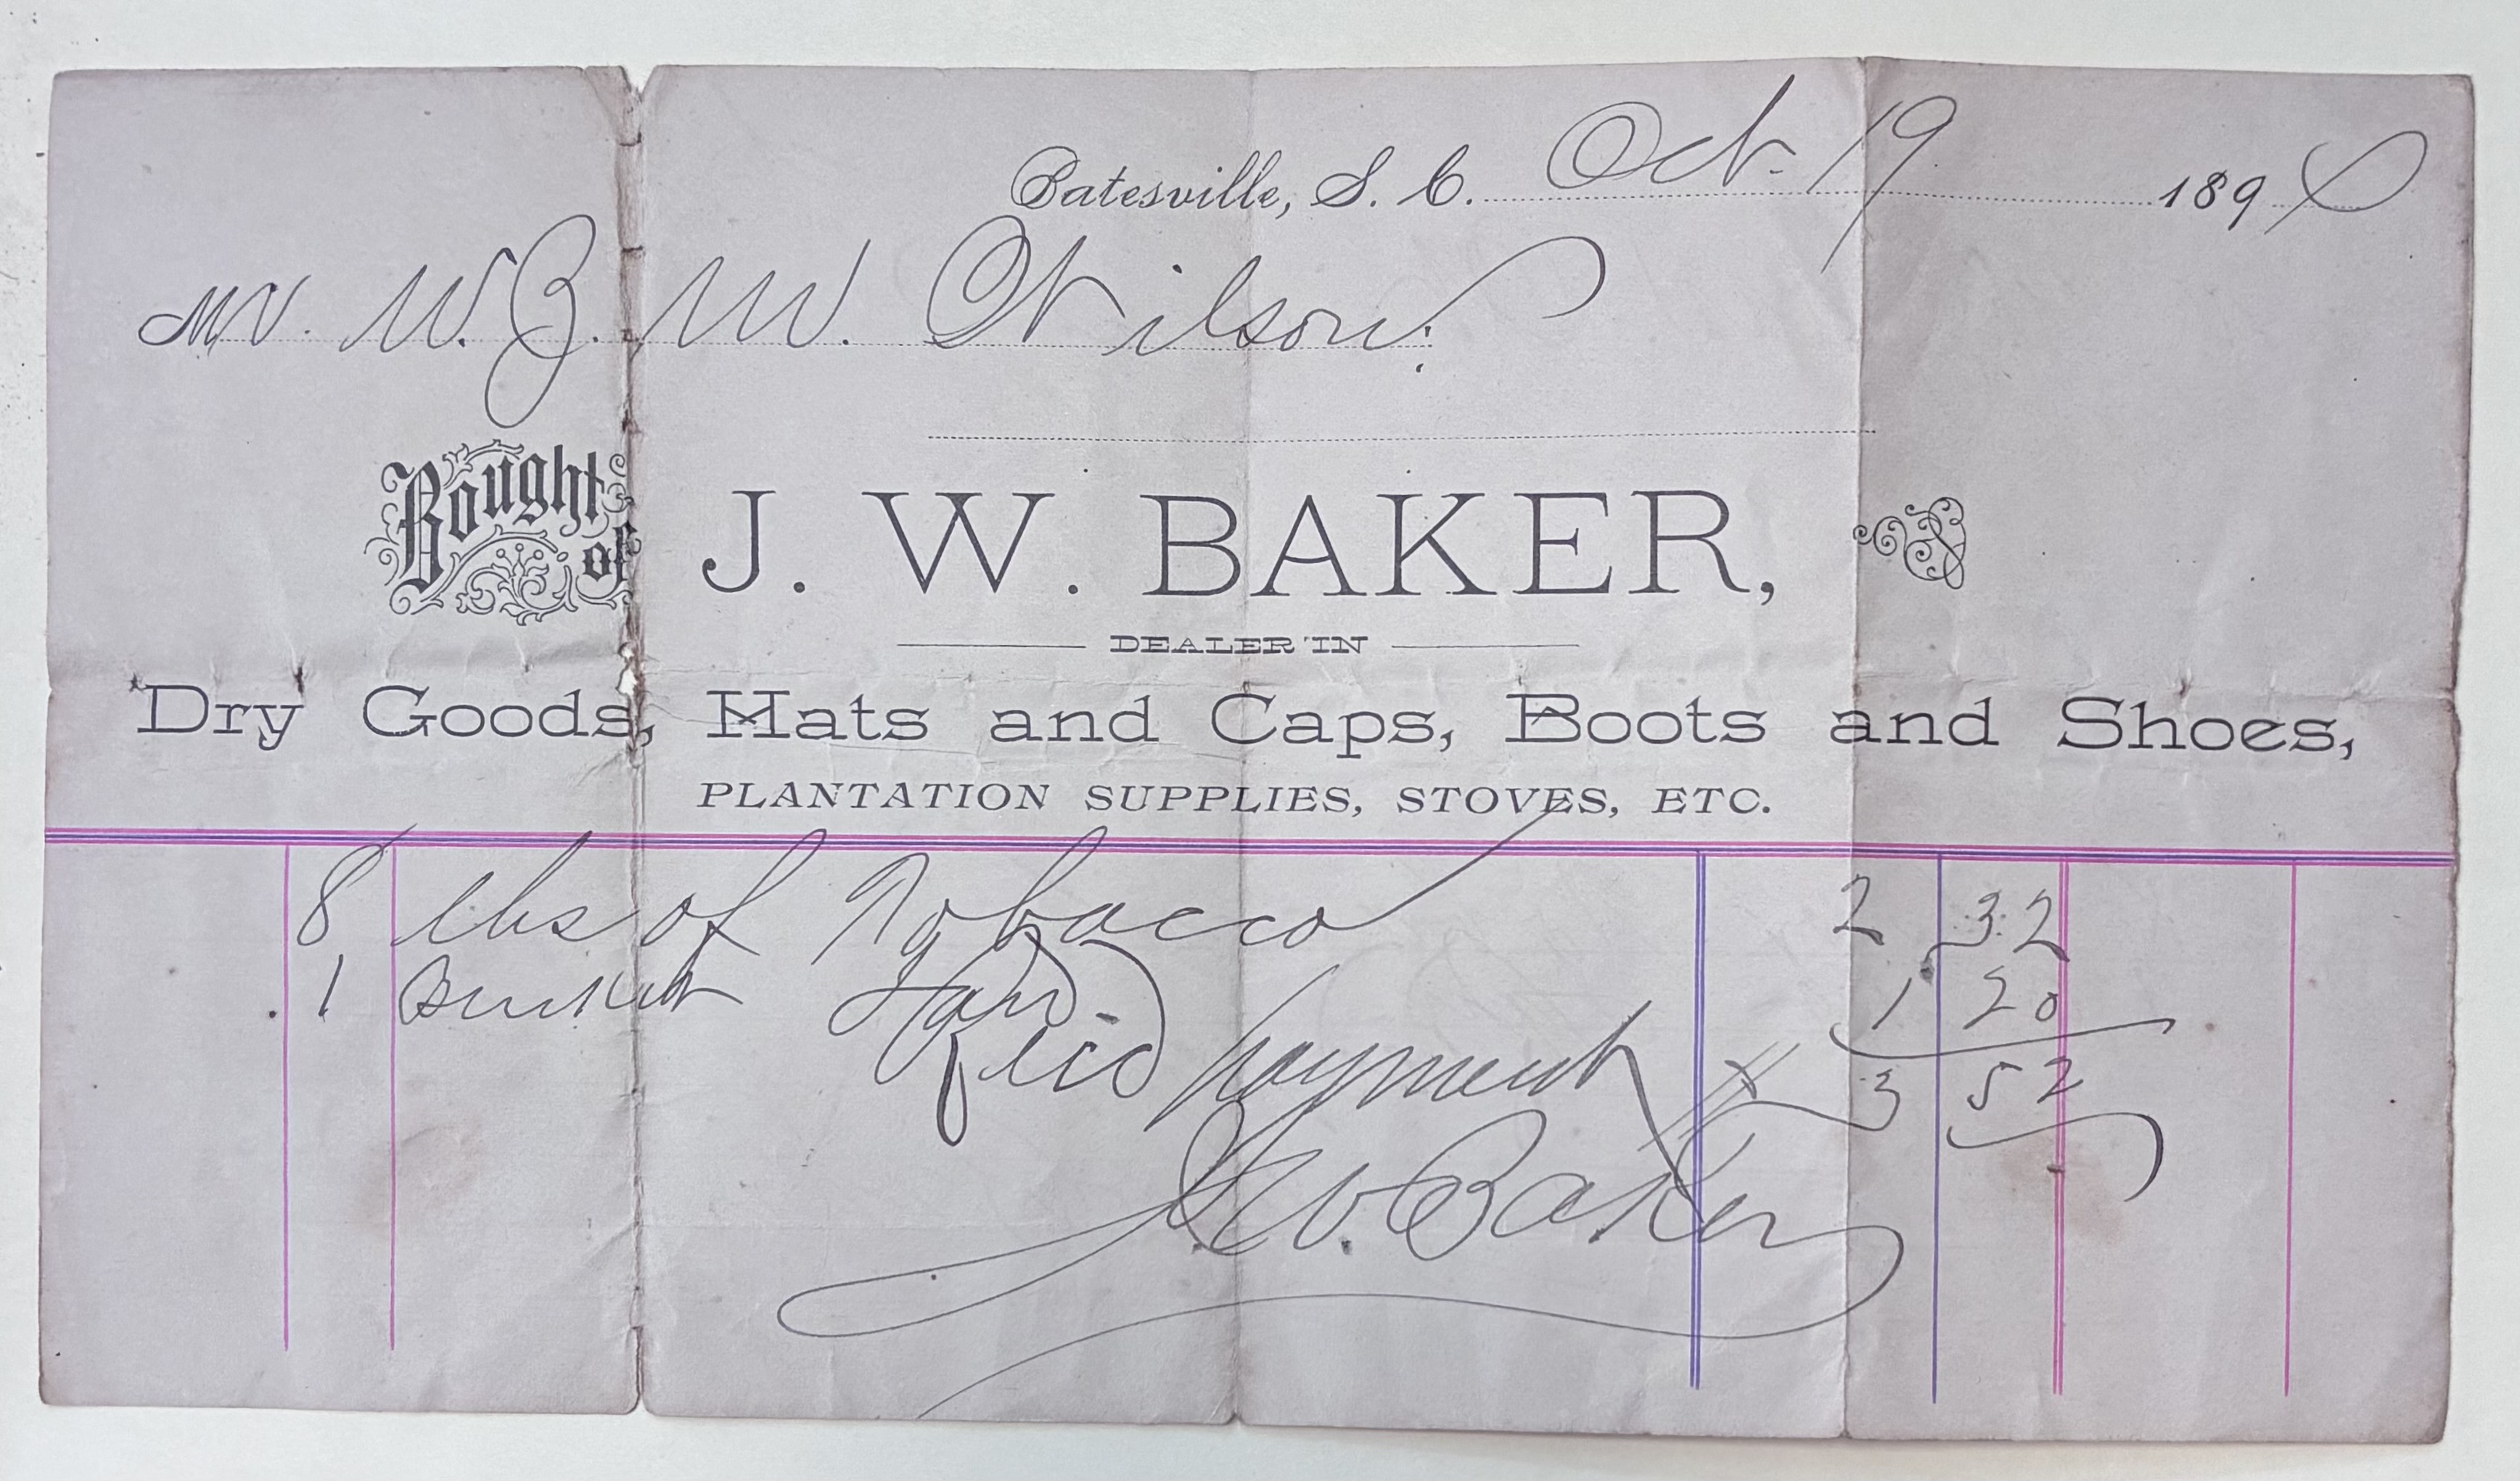 Batesville, S. C. Oct. 19 189
Mr. W. J. W. Wilson
Bought of J. W. BAKER,
DEALER IN
Dry Goods, Hats and Caps, Boots and Shoes,
PLANTATION SUPPLIES, STOVES, ETC.
8 lbs of Tobacco 2 32
1 Bucket Lard. 1 20
Rec'd payment 3 52
J W. Baker